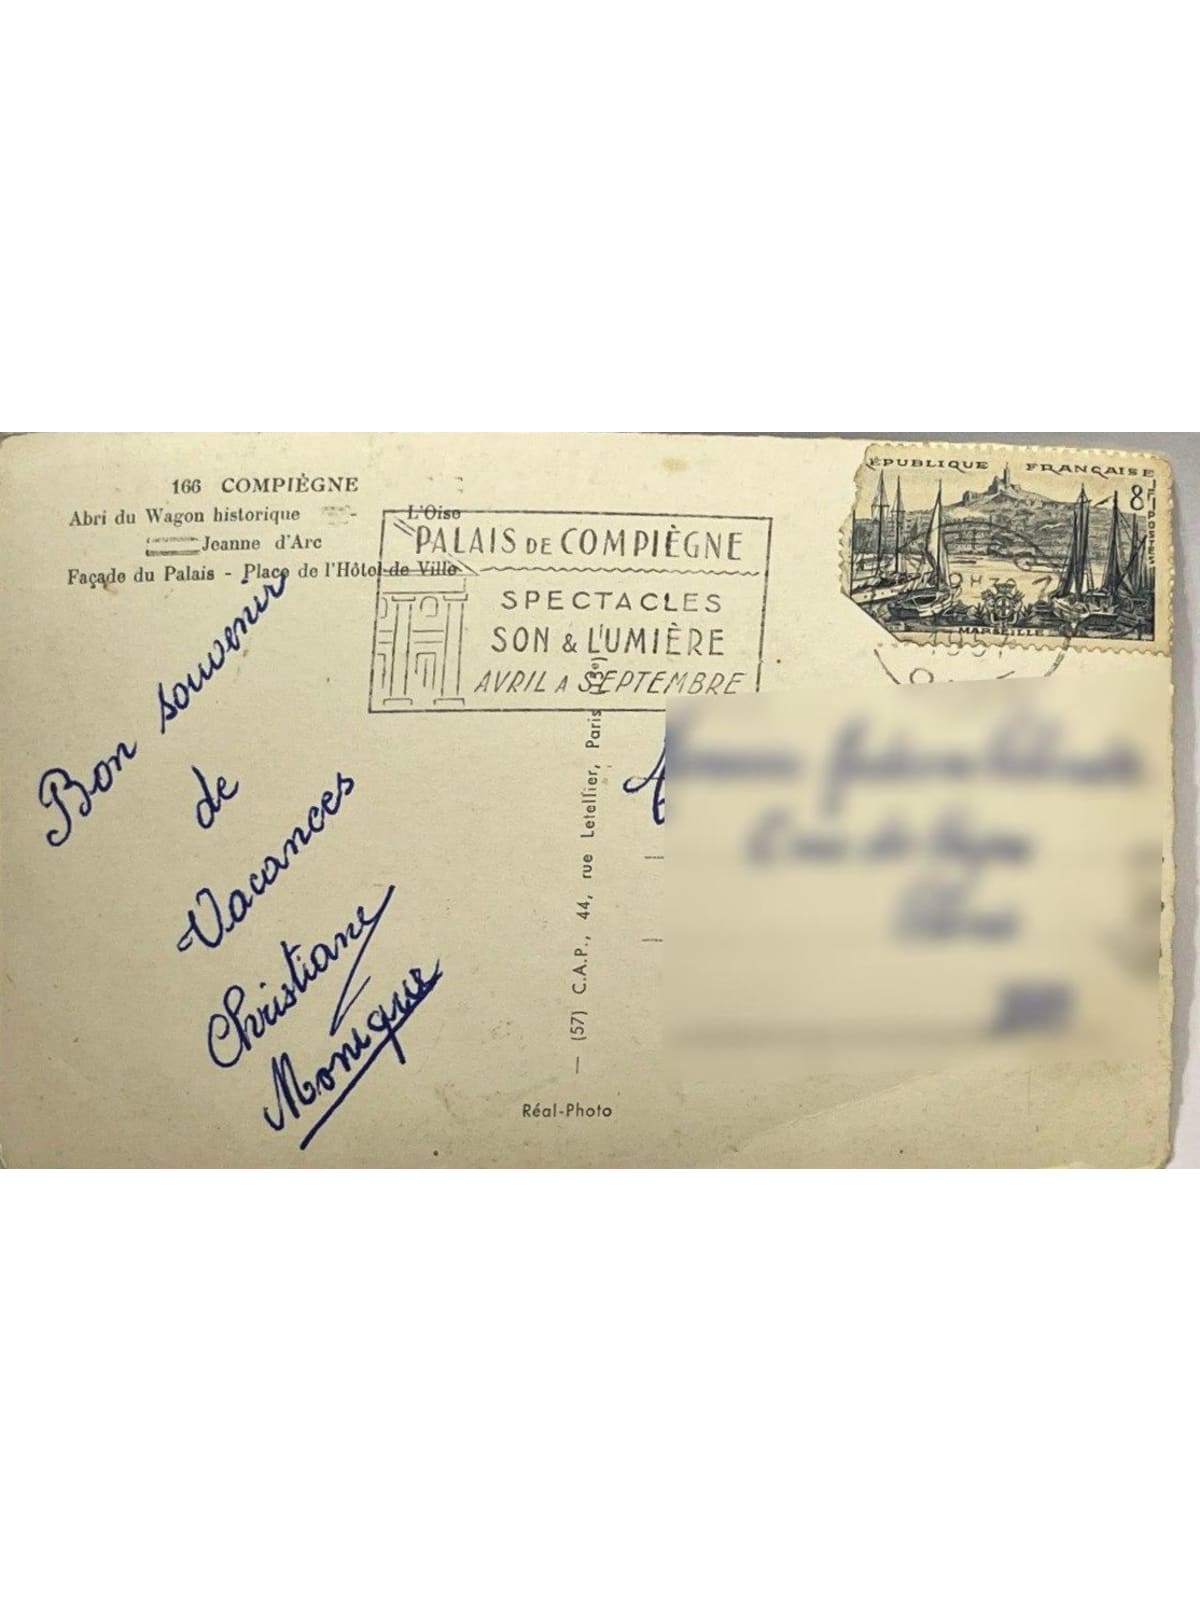 166 COMPIÈGNE
Abri du Wagon historique - L'Oise
Jeanne d'Arc
Façade du Palais - Place de l'Hôtel de Ville
PALAIS DE COMPIÈGNE
SPECTACLES
SON & LUMIÈRE
AVRIL A SEPTEMBRE
RÉPUBLIQUE FRANÇAISE
8F
POSTES
MARSEILLE
1957
Bon souvenir
de
Vacances
Christiane
Monique
— (57) C.A.P., 44, rue Letellier, Paris (15e)
Réal-Photo